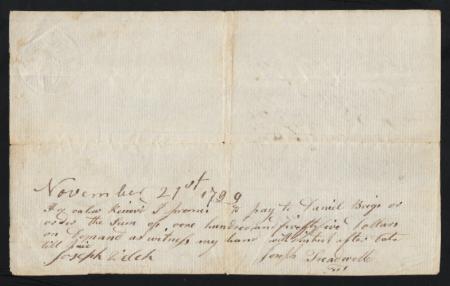 November 21st 1799
For value Receivd I promis to pay to Daniel or
order the Sum of one hundred and Dollars
on Demand as witness my hand with after Date
till paid
Joseph Joseph Treadwell